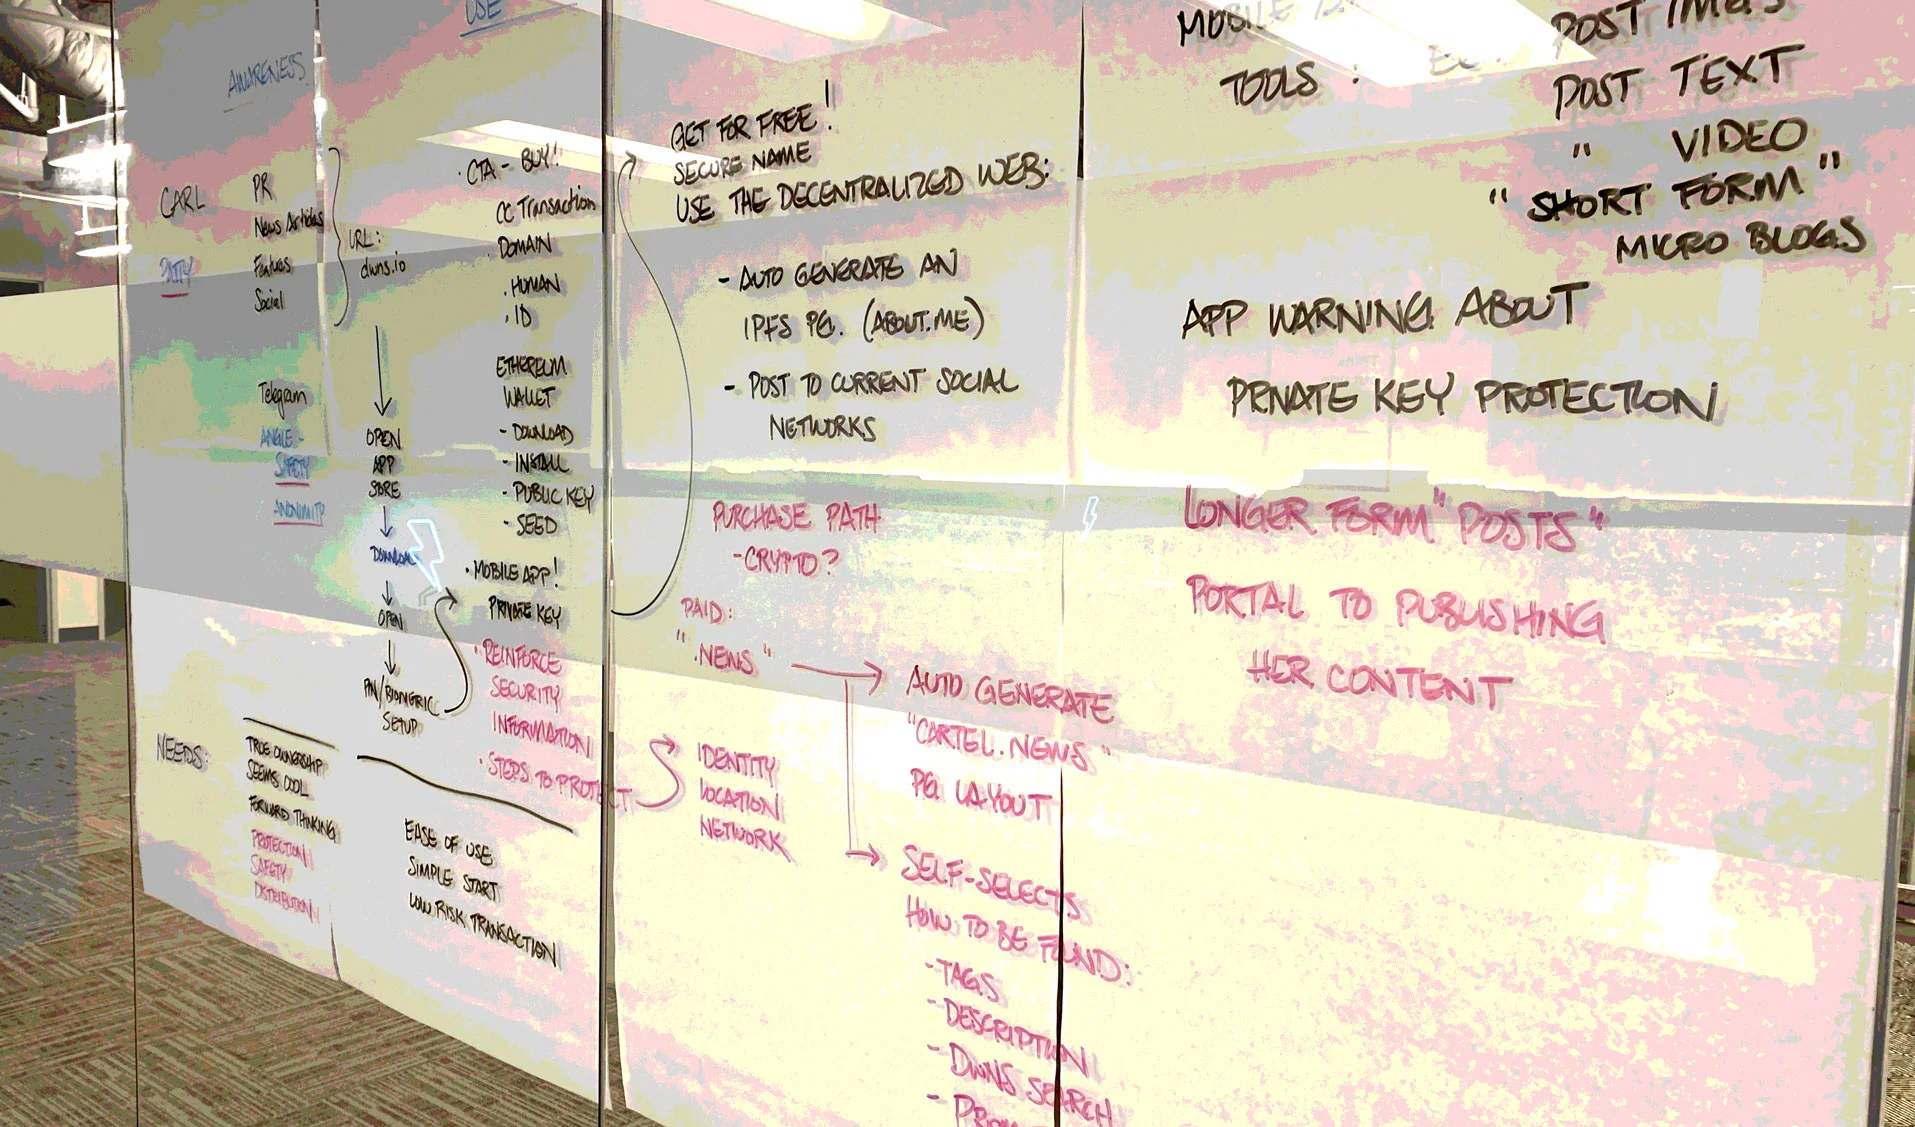 AWARENESS
CARL
PR
News Articles
Features
Social
URL:
dwns.io
Telegram
ANGLE-
SAFETY
ANONIMITY
OPEN
APP
STORE
DOWNLOAD
OPEN
PIN/BIOMETRIC
SETUP
NEEDS:
TRUE OWNERSHIP
SEEMS COOL
FORWARD THINKING
PROTECTION
SAFETY
DISTRIBUTION
USE
. CTA - BUY!!
CC Transaction
. DOMAIN
. HUMAN
. ID
ETHEREUM
WALLET
- DOWNLOAD
- INSTALL
- PUBLIC KEY
- SEED
. MOBILE APP!
PRIVATE KEY
. REINFORCE
SECURITY
INFORMATION
. STEPS TO PROTECT
EASE OF USE
SIMPLE START
LOW RISK TRANSACTION
GET FOR FREE!
SECURE NAME
USE THE DECENTRALIZED WEB:
- AUTO GENERATE AN
IPFS PG. (ABOUT.ME)
- POST TO CURRENT SOCIAL
NETWORKS
PURCHASE PATH
- CRYPTO?
PAID:
".NEWS"
IDENTITY
LOCATION
NETWORK
AUTO GENERATE
"CARTEL.NEWS"
PG. LAYOUT
SELF-SELECTS
HOW TO BE FOUND:
- TAGS
- DESCRIPTION
- DWNS SEARCH
MOBILE
TOOLS :
POST IMGS
POST TEXT
" VIDEO
"SHORT FORM"
MICRO BLOGS
APP WARNING ABOUT
PRIVATE KEY PROTECTION
LONGER FORM "POSTS"
PORTAL TO PUBLISHING
HER CONTENT